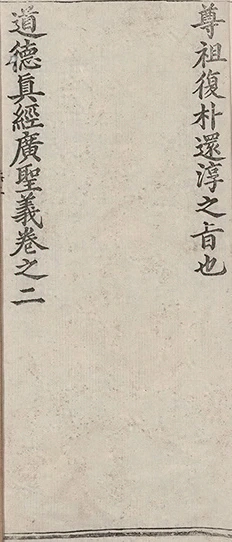 尊祖復朴還淳之旨也
道德真經廣聖義卷之二